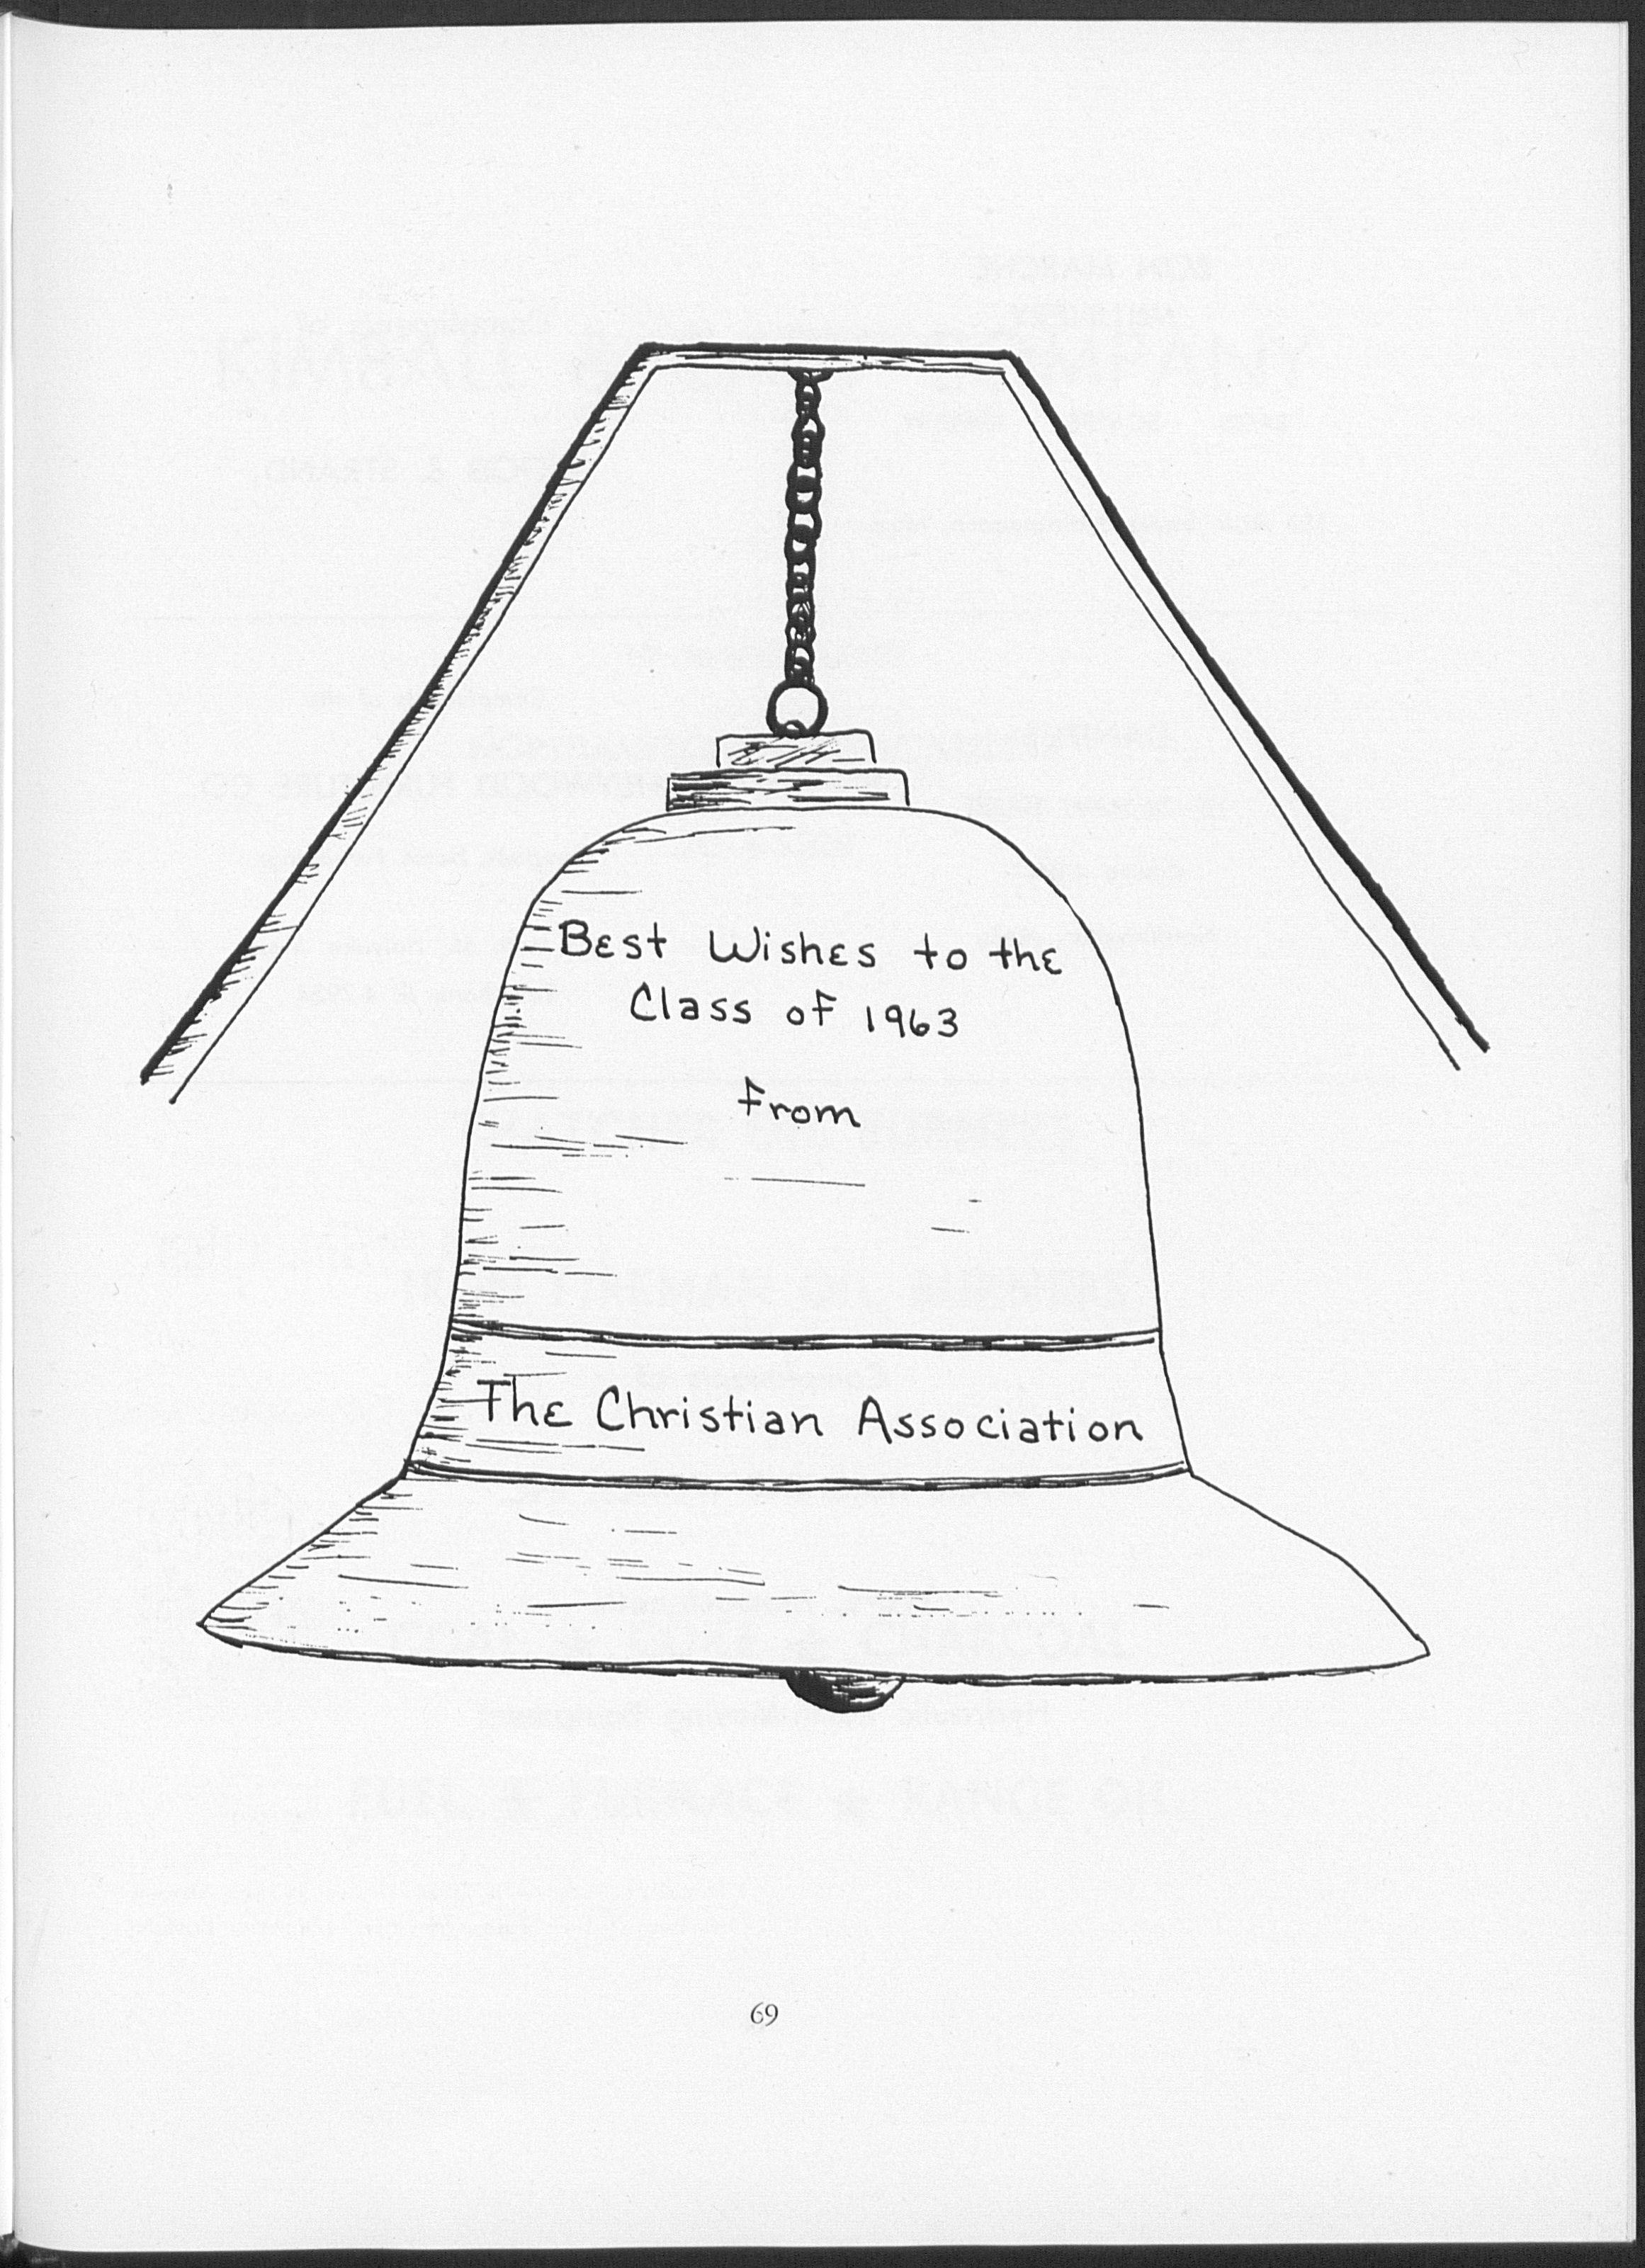 Best Wishes to the
Class of 1963
From
The Christian Association
69